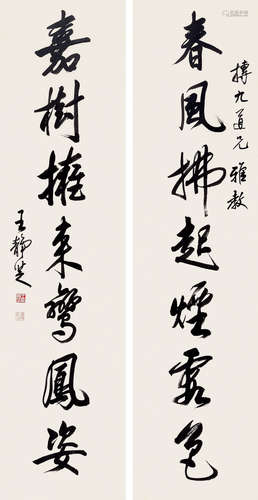 春風拂起煙霞色
摶九道兄 雅教
嘉樹擁來鸞鳳姿
王靜芝